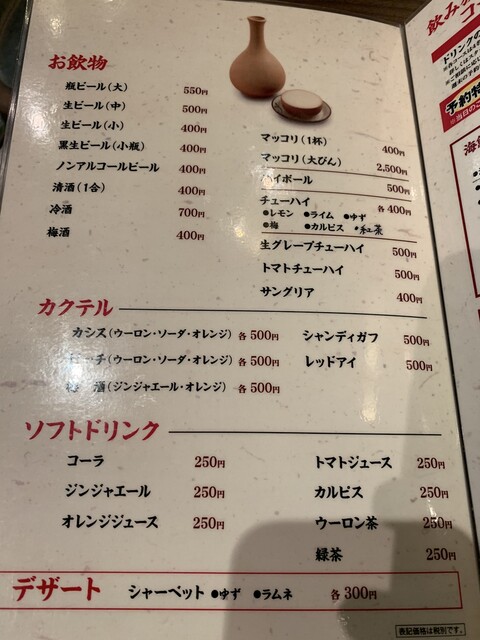 お飲物
瓶ビール(大) 550円
生ビール(中) 500円
生ビール(小) 400円
黒生ビール(小瓶) 400円
ノンアルコールビール 400円
清酒(1合) 400円
冷酒 700円
梅酒 400円
マッコリ(1杯) 400円
マッコリ(大びん) 2,500円
ハイボール 500円
チューハイ 各400円
●レモン ●ライム ●ゆず
●梅 ●カルピス •紅茶
生グレープチューハイ 500円
トマトチューハイ 500円
サングリア 400円
カクテル
カシス(ウーロン・ソーダ・オレンジ) 各500円
ピーチ(ウーロン・ソーダ・オレンジ) 各500円
梅 酒(ジンジャエール・オレンジ) 各500円
シャンディガフ 500円
レッドアイ 500円
ソフトドリンク
コーラ 250円
ジンジャエール 250円
オレンジジュース 250円
トマトジュース 250円
カルピス 250円
ウーロン茶 250円
緑茶 250円
デザート シャーベット ●ゆず ●ラムネ 各300円
表記価格は税別です。
飲み
コ
ドリンクの
予約特
※当日の
海